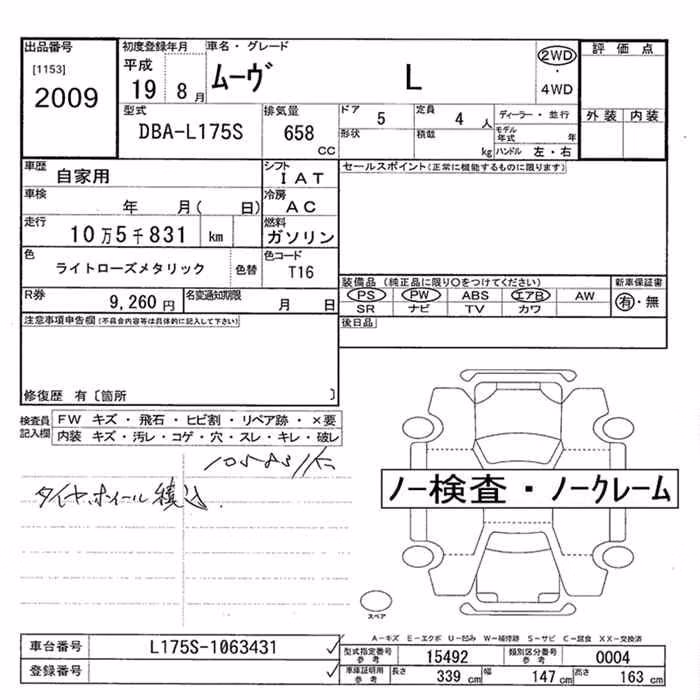 出品番号
[1153]
2009
初度登録年月
平成
19 8月
車名・グレード
ムーヴ L
2WD
・
4WD
評価点
外装 内装
型式
DBA-L175S
排気量
658
CC
ドア
5
定員
4 人
ディーラー・並行
形状
積載
kg
モデル年式 年
ハンドル 左・右
車歴
自家用
シフト
IAT
セールスポイント(正常に機能するものに限ります)
車検
年 月( 日)
冷房
AC
走行
10万5千831 km
燃料
ガソリン
色
ライトローズメタリック
色替
色コード
T16
装備品(純正品に限り○をつけてください)
新車保証書
PS PW ABS エアB AW
有・無
SR ナビ TV カワ
R券
9,260 円
名変通知期限
月 日
後日品
注意事項申告欄(不具合内容等は具体的に記入して下さい)
修復歴 有〔箇所 〕
検査員記入欄
FW キズ・飛石・ヒビ割・リペア跡・×要
内装 キズ・汚レ・コゲ・穴・スレ・キレ・破レ
タイヤ、ホイール積込
ノー検査・ノークレーム
スペア
A-キズ E-エクボ U-凹み W-補修跡 S-サビ C-腐食 XX-交換済
車台番号
L175S-1063431
型式指定番号
参考
15492
類別区分番号
参考
0004
登録番号
車庫証明用
参考
長さ
339 cm
幅
147 cm
高さ
163 cm